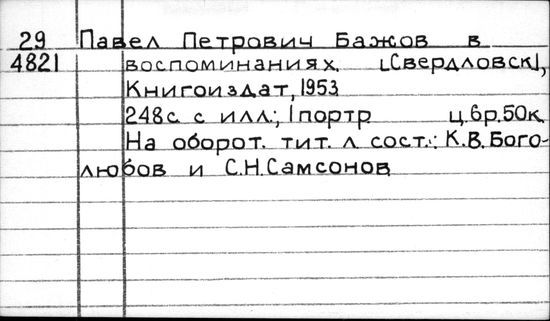 29 Павел Петрович Бажов в
4821 воспоминаниях. [Свердловск],
Книгоиздат, 1953
248с. с илл.; 1портр ц.6р.50к.
На оборот. тит. л. сост.: К.В.Бого-
любов и С.Н.Самсонов